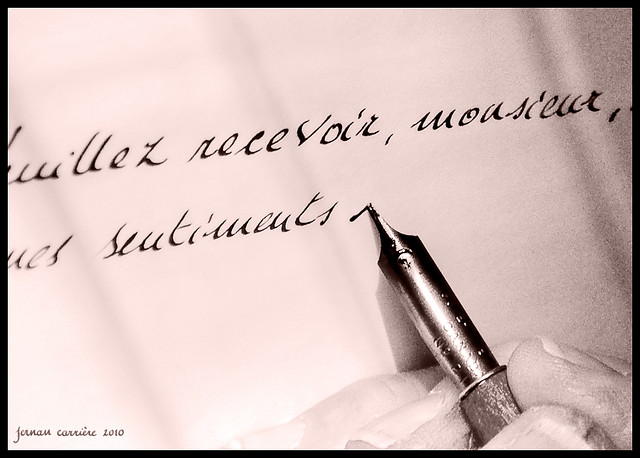 euillez recevoir, monsieur,
mes sentiments
fernan carrière 2010